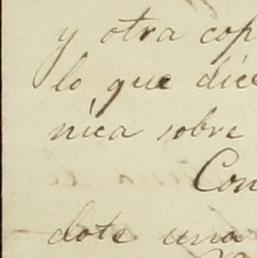 y otra cop
lo que dice
nica sobre
Con
dote una